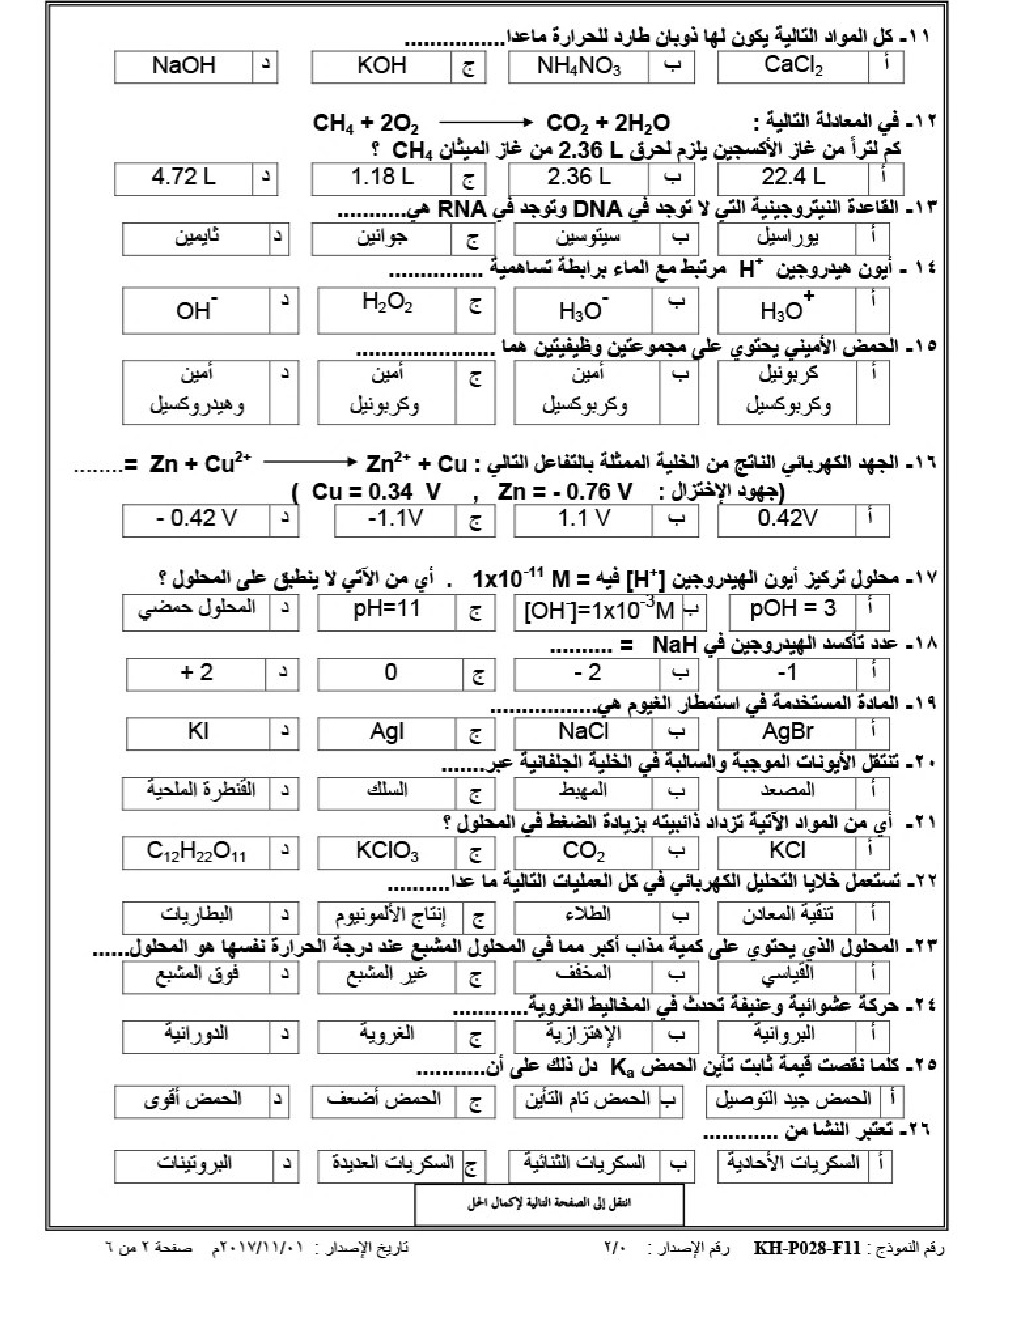 ١١- كل المواد التالية يكون لها ذوبان طارد للحرارة ماعدا................
أ CaCl₂ ب NH₄NO₃ ج KOH د NaOH
١٢- في المعادلة التالية : CH₄ + 2O₂ ⟶ CO₂ + 2H₂O
كم لتراً من غاز الأكسجين يلزم لحرق 2.36 L من غاز الميثان CH₄ ؟
أ 22.4 L ب 2.36 L ج 1.18 L د 4.72 L
١٣- القاعدة النيتروجينية التي لا توجد في DNA وتوجد في RNA هي...........
أ يوراسيل ب سيتوسين ج جوانين د ثايمين
١٤ - أيون هيدروجين H⁺ مرتبط مع الماء برابطة تساهمية ...............
أ H₃O⁺ ب H₃O⁻ ج H₂O₂ د OH⁻
١٥- الحمض الأميني يحتوي على مجموعتين وظيفيتين هما ......................
أ كربونيل ب أمين ج أمين د أمين
وكربوكسيل وكربوكسيل وكربونيل وهيدروكسيل
١٦- الجهد الكهربائي الناتج من الخلية الممثلة بالتفاعل التالي : Zn + Cu²⁺ ⟶ Zn²⁺ + Cu =........
(جهود الإختزال : Zn = - 0.76 V , Cu = 0.34 V )
أ 0.42V ب 1.1 V ج -1.1V د - 0.42 V
١٧- محلول تركيز أيون الهيدروجين [H⁺] فيه = 1x10⁻¹¹ M . أي من الآتي لا ينطبق على المحلول ؟
أ pOH = 3 ب [OH⁻]=1x10⁻³M ج pH=11 د المحلول حمضي
١٨- عدد تأكسد الهيدروجين في NaH = ..........
أ -1 ب - 2 ج 0 د + 2
١٩- المادة المستخدمة في استمطار الغيوم هي.................
أ AgBr ب NaCl ج AgI د KI
٢٠- تنتقل الأيونات الموجبة والسالبة في الخلية الجلفانية عبر.......
أ المصعد ب المهبط ج السلك د القنطرة الملحية
٢١- أي من المواد الآتية تزداد ذائبيته بزيادة الضغط في المحلول ؟
أ KCl ب CO₂ ج KClO₃ د C₁₂H₂₂O₁₁
٢٢- تستعمل خلايا التحليل الكهربائي في كل العمليات التالية ما عدا..........
أ تنقية المعادن ب الطلاء ج إنتاج الألمونيوم د البطاريات
٢٣- المحلول الذي يحتوي على كمية مذاب أكبر مما في المحلول المشبع عند درجة الحرارة نفسها هو المحلول......
أ القياسي ب المخفف ج غير المشبع د فوق المشبع
٢٤- حركة عشوائية وعنيفة تحدث في المخاليط الغروية............
أ البروانية ب الإهتزازية ج الغروية د الدورانية
٢٥- كلما نقصت قيمة ثابت تأين الحمض Kₐ دل ذلك على أن...........
أ الحمض جيد التوصيل ب الحمض تام التأين ج الحمض أضعف د الحمض أقوى
٢٦- تعتبر النشا من ............
أ السكريات الأحادية ب السكريات الثنائية ج السكريات العديدة د البروتينات
انتقل إلى الصفحة التالية لإكمال الحل
رقم النموذج : KH-P028-F11 رقم الإصدار : ٢/٠ تاريخ الإصدار : ٢٠١٧/١١/٠١م صفحة ٢ من ٦